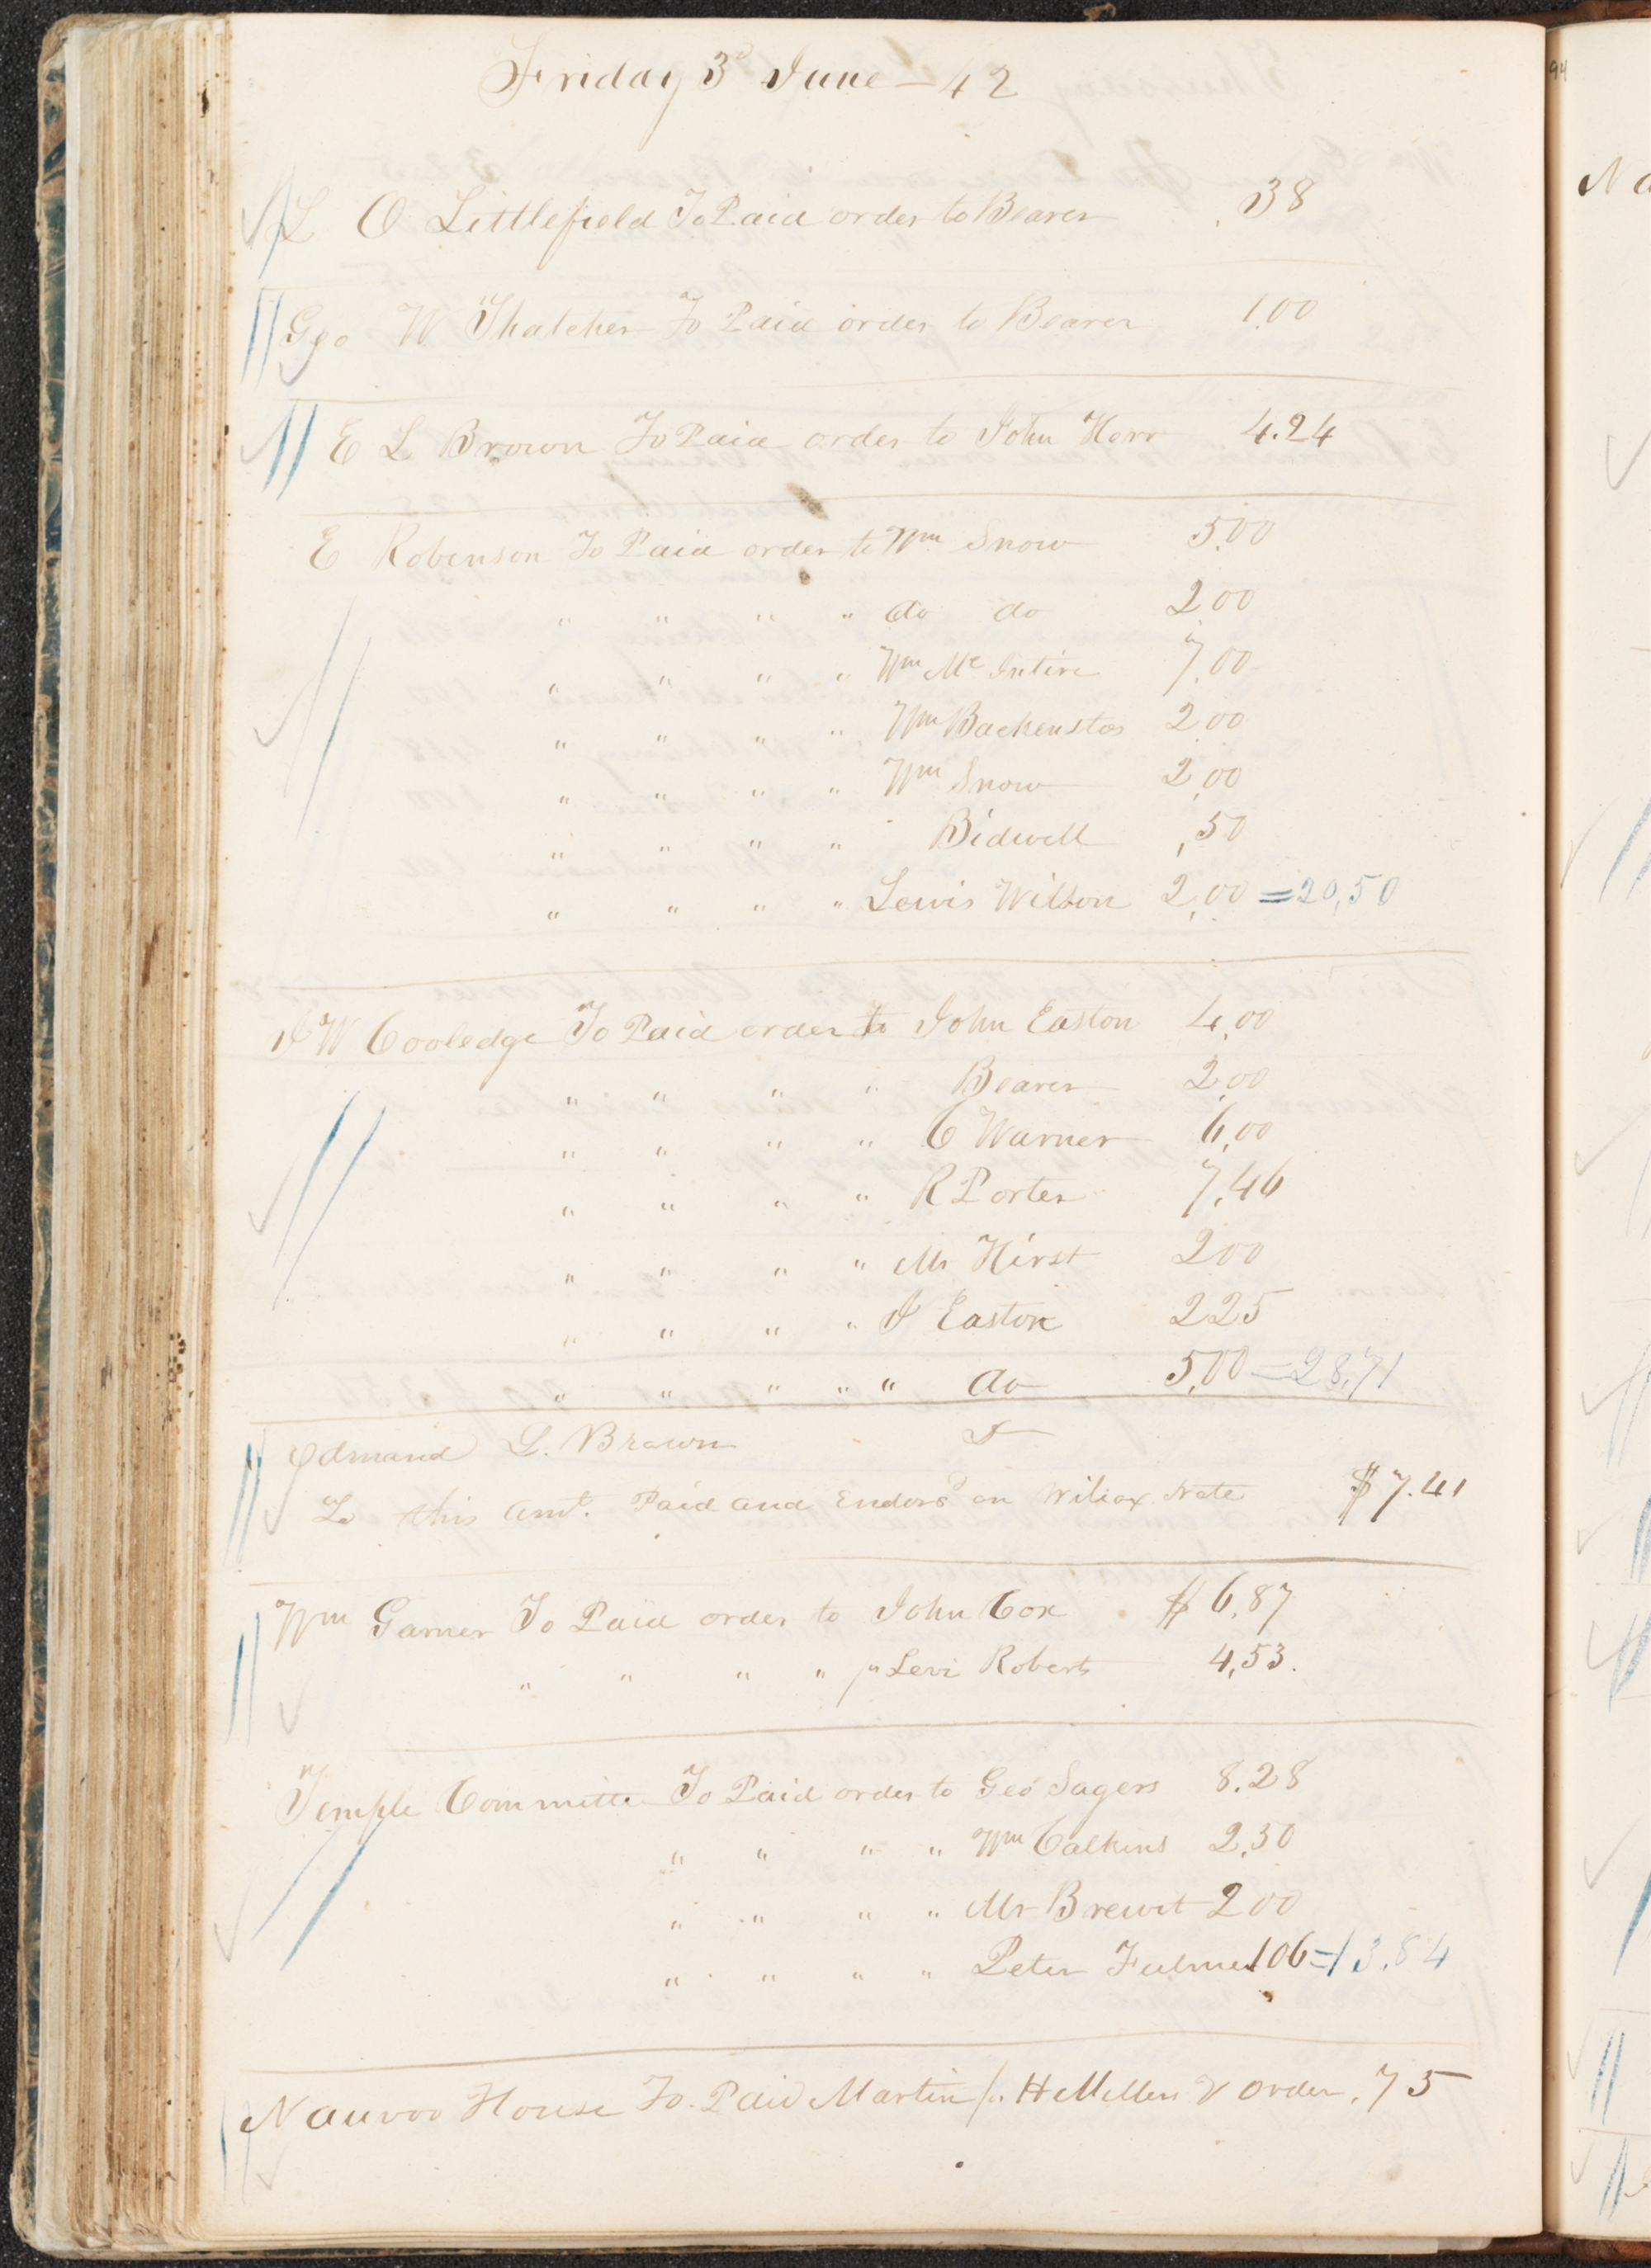 Friday 3d June - 42
L O Littlefield To Paid order to Bearer .38
Geo W Thatcher To Paid order to Bearer 1.00
E L Brown To Paid order to John Harr 4.24
E Robinson To Paid order to Wm Snow 5.00
" " " " do do 2.00
" " " " Wm Mc Intire 7.00
" " " " Wm Backenstos 2.00
" " " " Wm Snow 2.00
" " " " Bidwell ,50
" " " " Lewis Wilson 2,00 =20,50
J W Cooledge To Paid order to John Easton 4,00
" " " " Bearer 2,00
" " " " C Warner 6,00
" " " " R Porter 7,46
" " " " Mr Hirst 200
" " " " J Easton 225
" " " " " do 5,00 =28,71
Edmand L. Brown Dr
To this amt. Paid and Endorsd on Wilcox Note $7.41
Wm Garner To Paid order to John Cox $6,87
" " " " " Levi Roberts 4,53.
Temple Committee To Paid order to Geo Sagers 8.28
" " " " Wm Calkins 2,50
" " " " Mr Brewit 200
" " " " Peter Fulmer 106=13.84
Nauvoo House To. Paid Martin H order ,75
94
Na